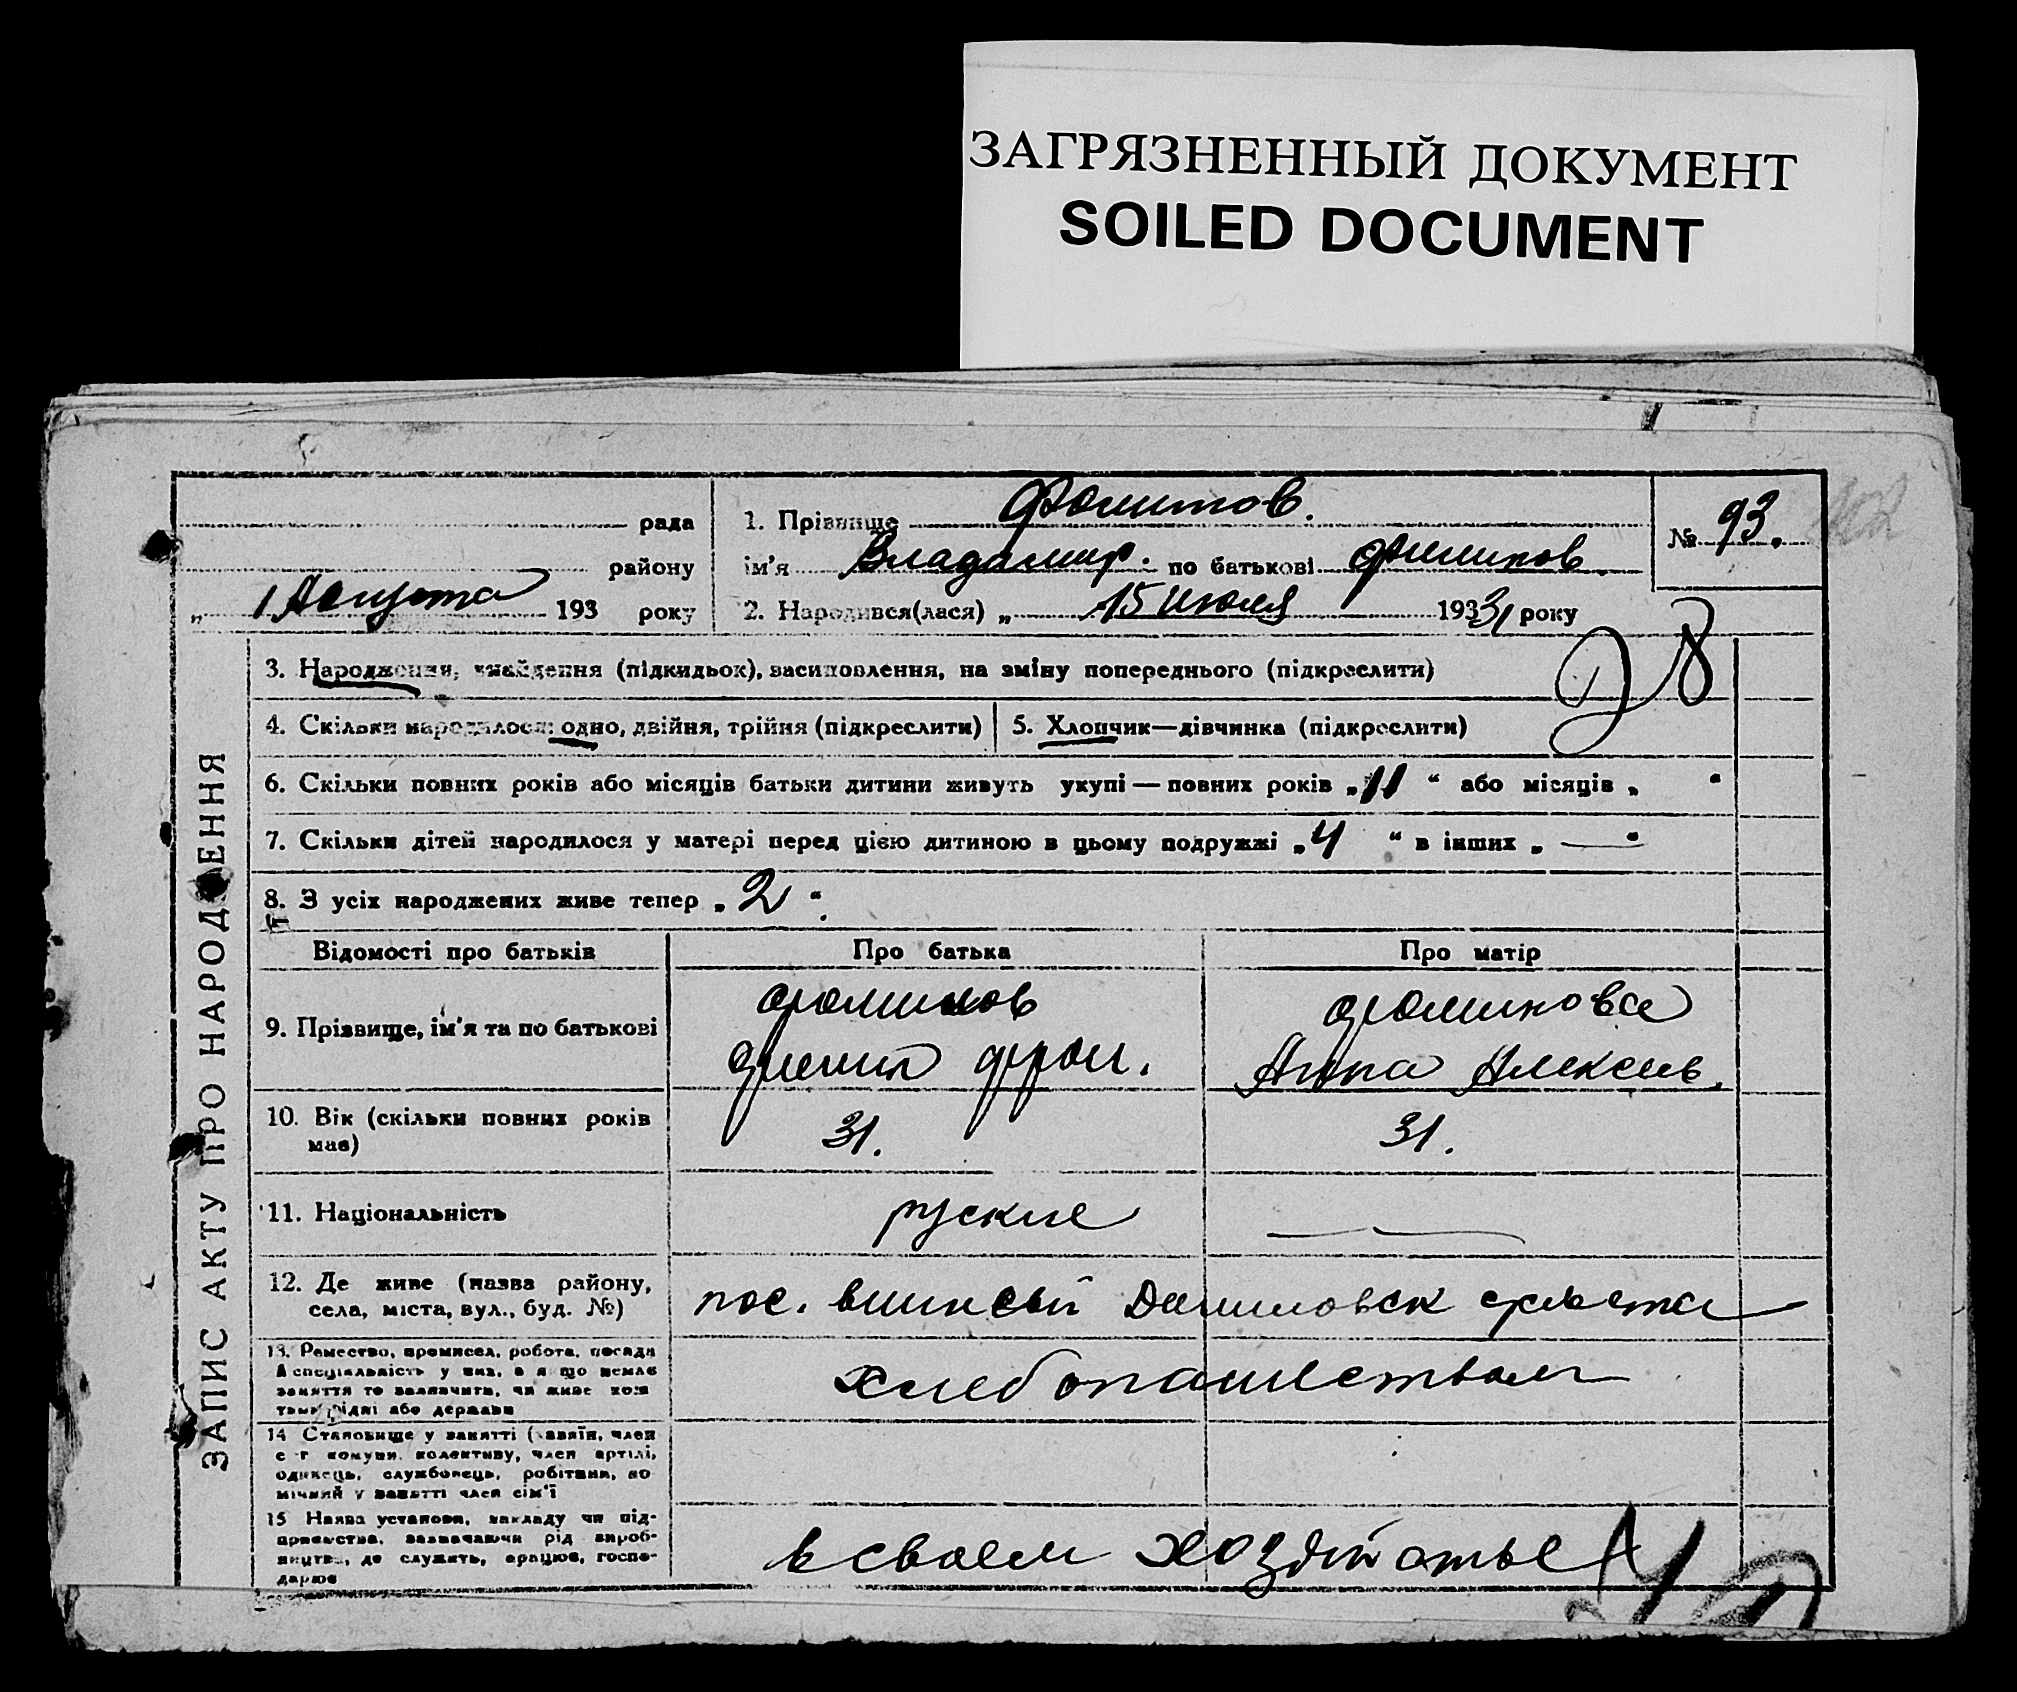 ЗАГРЯЗНЕННЫЙ ДОКУМЕНТ
SOILED DOCUMENT
рада
району
„ 1 Августа 193 року
1. Прізвище
ім'я Владимир. по батькові
2. Народився(лася) „ 15 июля 1931 року
№ 93.
28
ЗАПИС АКТУ ПРО НАРОДЖЕННЯ
3. Народження, знайдення (підкидьок), васиновлення, на зміну попереднього (підкреслити)
4. Скільки народилося: одно, двійня, трійня (підкреслити) 5. Хлопчик—дівчинка (підкреслити)
6. Скільки повних років або місяців батьки дитини живуть укупі — повних років „ 11 “ або місяців „ “
7. Скільки дітей народилося у матері перед цією дитиною в цьому подружжі „ 4 “ в інших „ — “
8. З усіх народжених живе тепер „ 2 “.
Відомості про батьків Про батька Про матір
9. Прізвище, ім'я та по батькові
Анна Алексеев.
10. Вік (скільки повних років має) 31. 31.
11. Національність руские —
12. Де живе (назва району, села, міста, вул., буд. №)
пос.
13. Ремество, промисел, робота, посада й спеціяльність у них, а якщо немає заняття то зазначити, чи живе коштами рідні або держави
хлебопашеством
14 Становище у занятті (хазяїн, член с-г комуни, колективу, член артілі, одинець, службовець, робітник, помічний у занятті член сім'ї
15 Назва установи, закладу чи підприємства, зазначаючи рід виробництва, де служить, працює, господарює
в своем